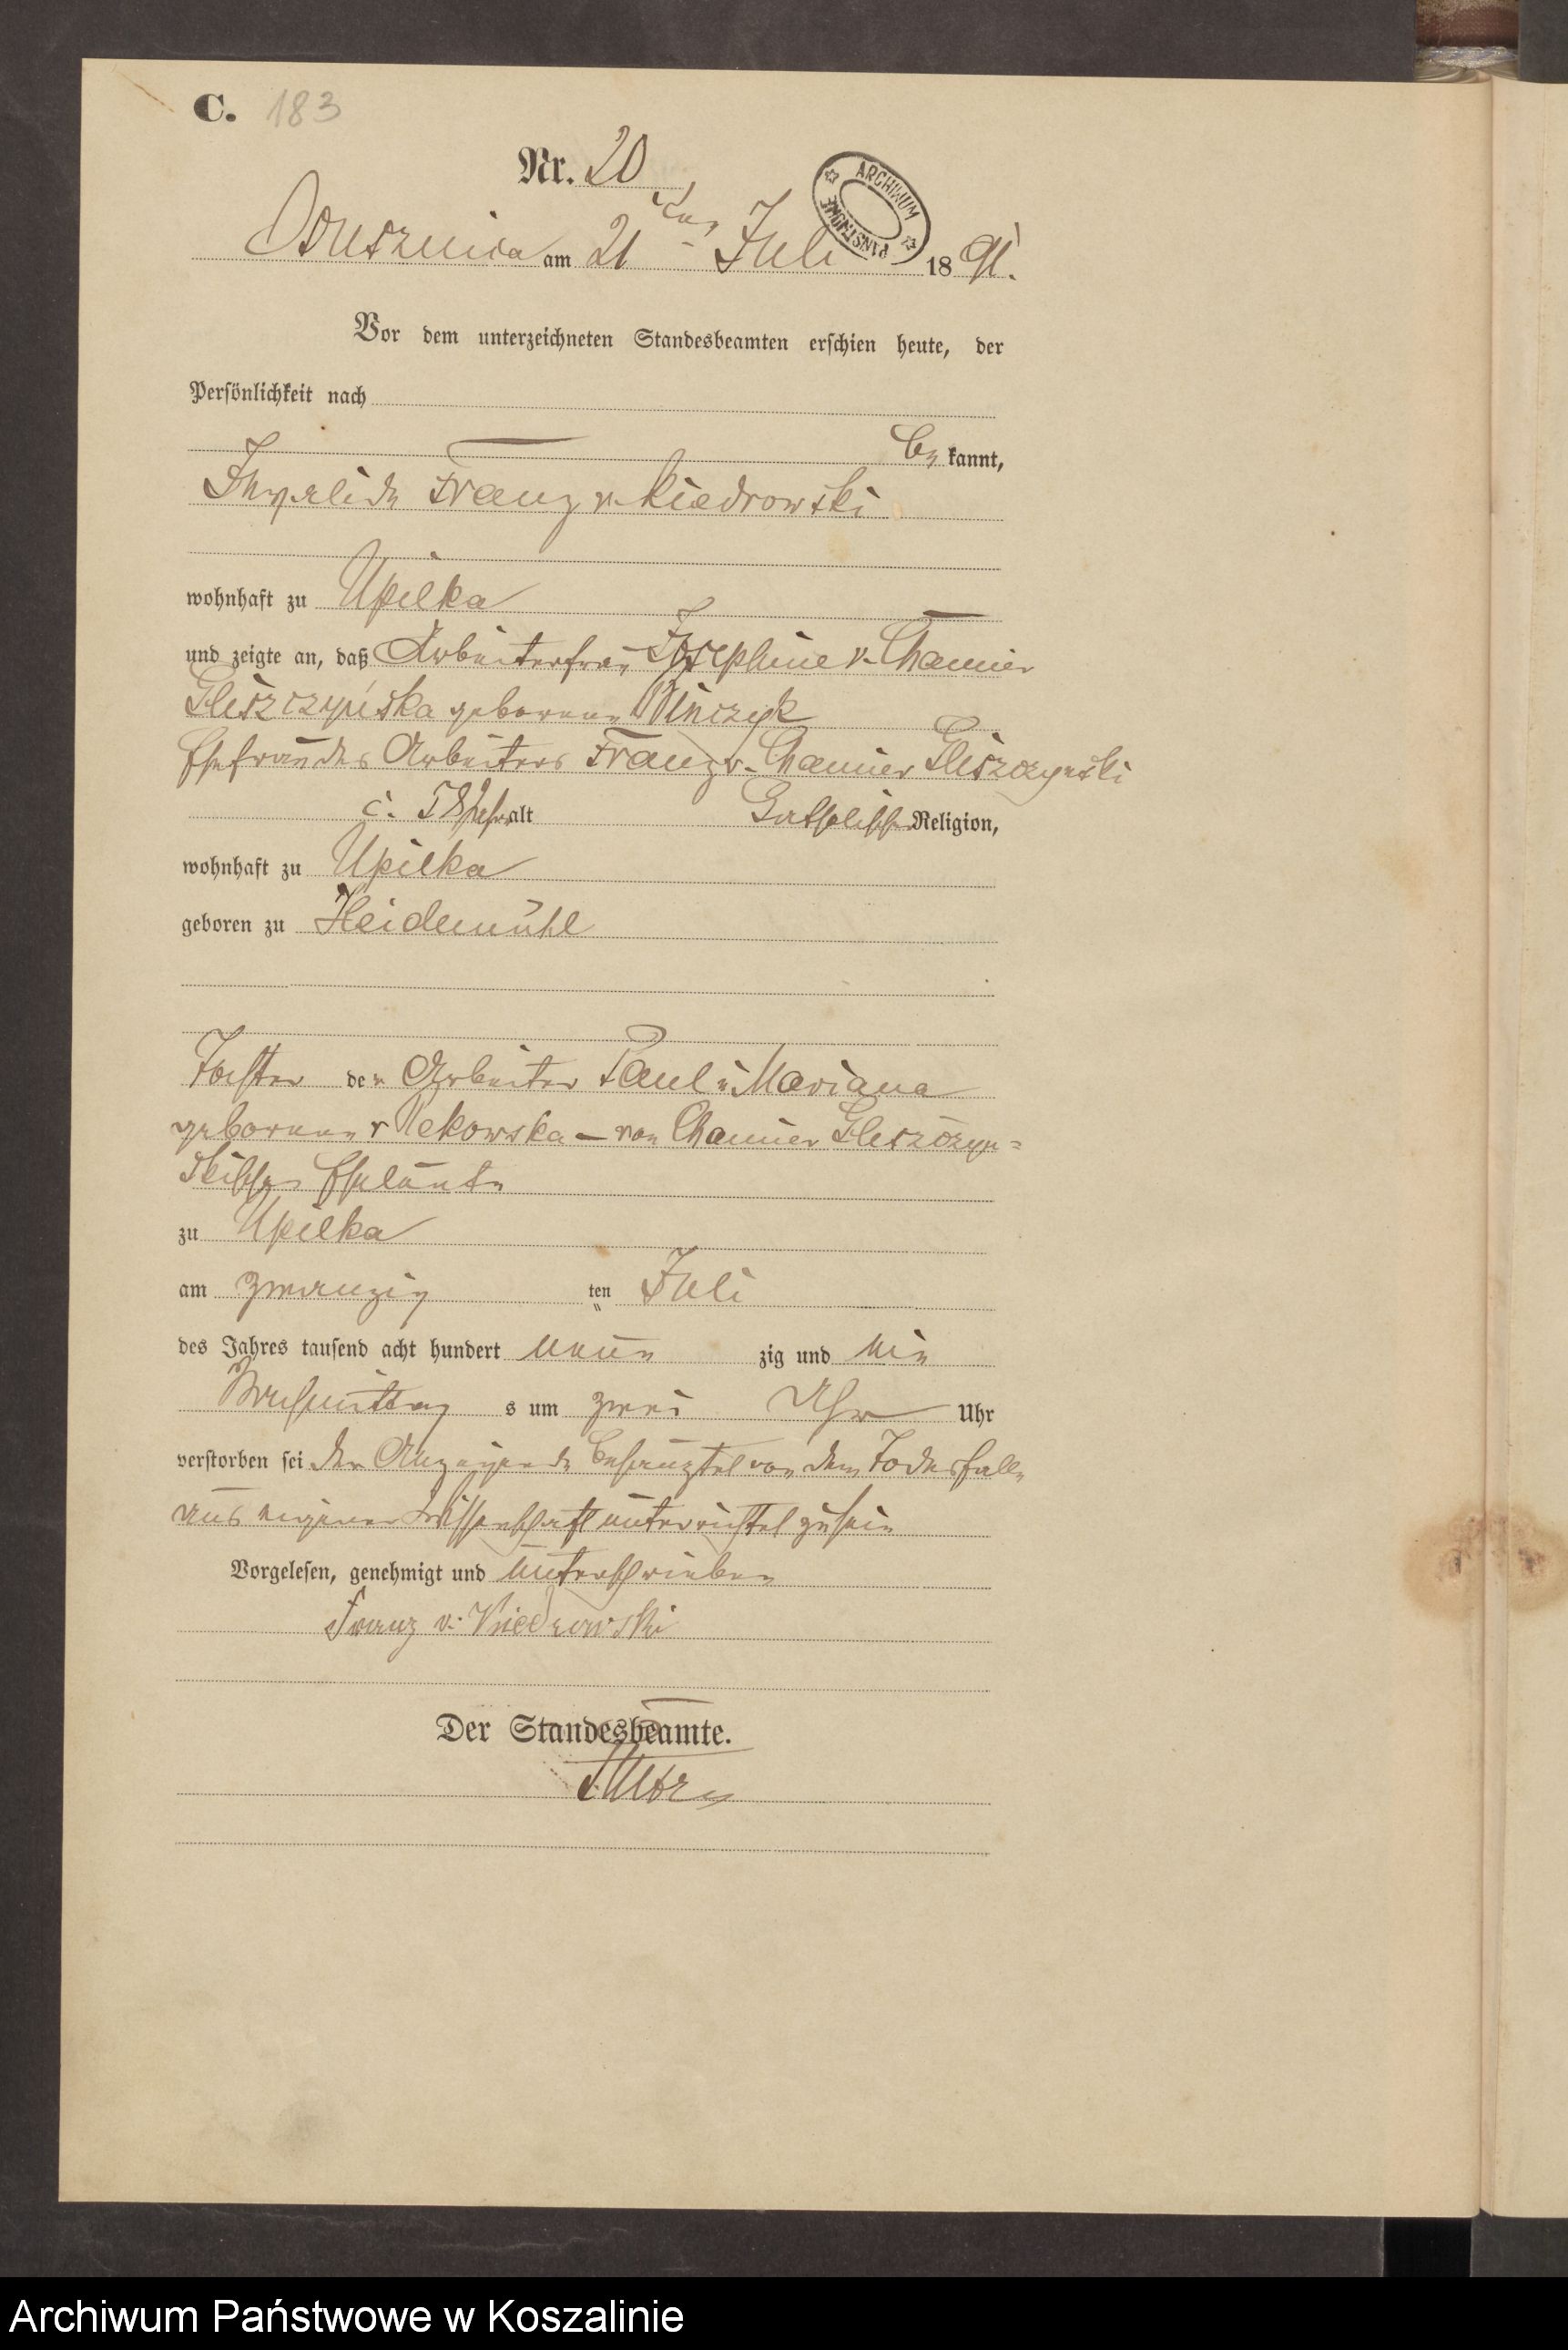 C. 183
Nr. 20
ARCHIWUM PAŃSTWOWE
Ossusznica am 21 ten Juli 1891.
Vor dem unterzeichneten Standesbeamten erschien heute, der
Persönlichkeit nach
be kannt,
Invalide Franz v. Kiedrowski
wohnhaft zu Upilka
und zeigte an, daß Arbeiterfrau Josephine v. Chamier
Gliszczyńska geborene Winczyk
Ehefrau des Arbeiters Franz v. Chamier Gliszczynski
58 Jahr alt Katholischer Religion,
wohnhaft zu Upilka
geboren zu Heidemühl
Tochter der Arbeiter Paul u Mariana
geborene v Rekowska – von Chamier Gliszczyn=
skischen Eheleute
zu Upilka
am zwanzig ten Juli
des Jahres tausend acht hundert neun zig und ein
Nachmittag s um zwei Uhr Uhr
verstorben sei der Anzeigende behauptet von dem Todesfalle
aus eigener Wissenschaft unterrichtet zu sein
Vorgelesen, genehmigt und unterschrieben
Franz v. Kiedrowski
Der Standesbeamte.
Archiwum Państwowe w Koszalinie